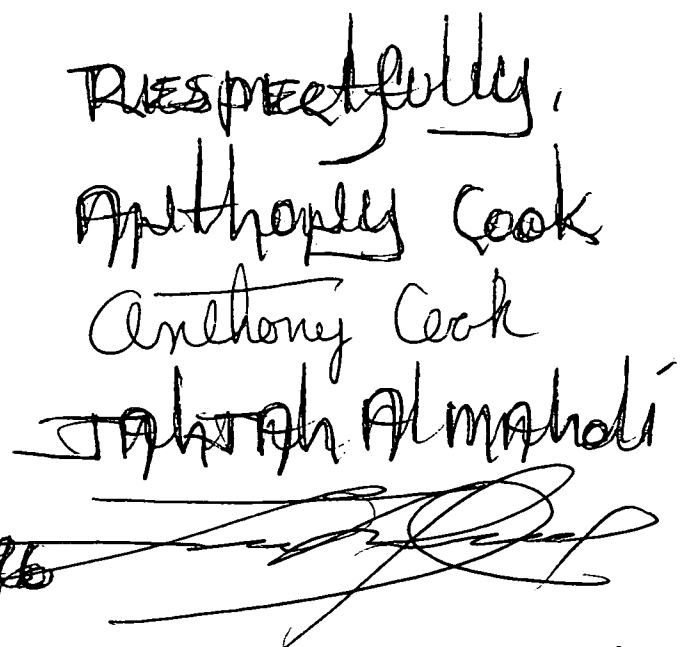 Respectfully,
Anthony Cook
Anthony Cook
JAhJAh AlmAhdi